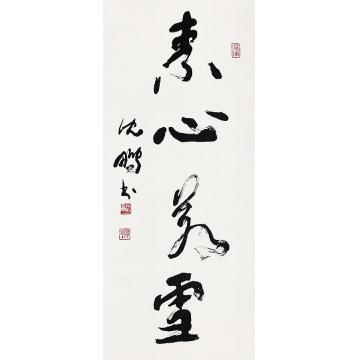 素心若雪
沈鹏书